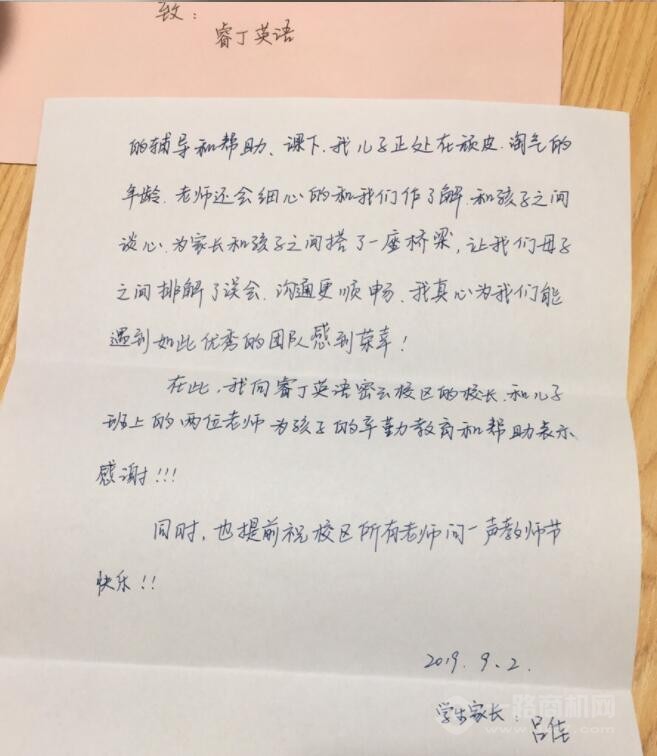 致：
睿丁英语
的辅导和帮助、课下.我儿子正处在顽皮.淘气的
年龄.老师还会细心的和我们作了解.和孩子之间
谈心.为家长和孩子之间搭了一座桥梁,让我们母子
之间排解了误会.沟通更顺畅.我真心为我们能
遇到如此优秀的团队感到荣幸!
在此,我向睿丁英语密云校区的校长.和儿子
班上的两位老师为孩子的辛勤教育和帮助表示
感谢!!!
同时,也提前祝校区所有老师问一声教师节
快乐!!
2019.9.2.
学生家长:吕佳
一路商机网